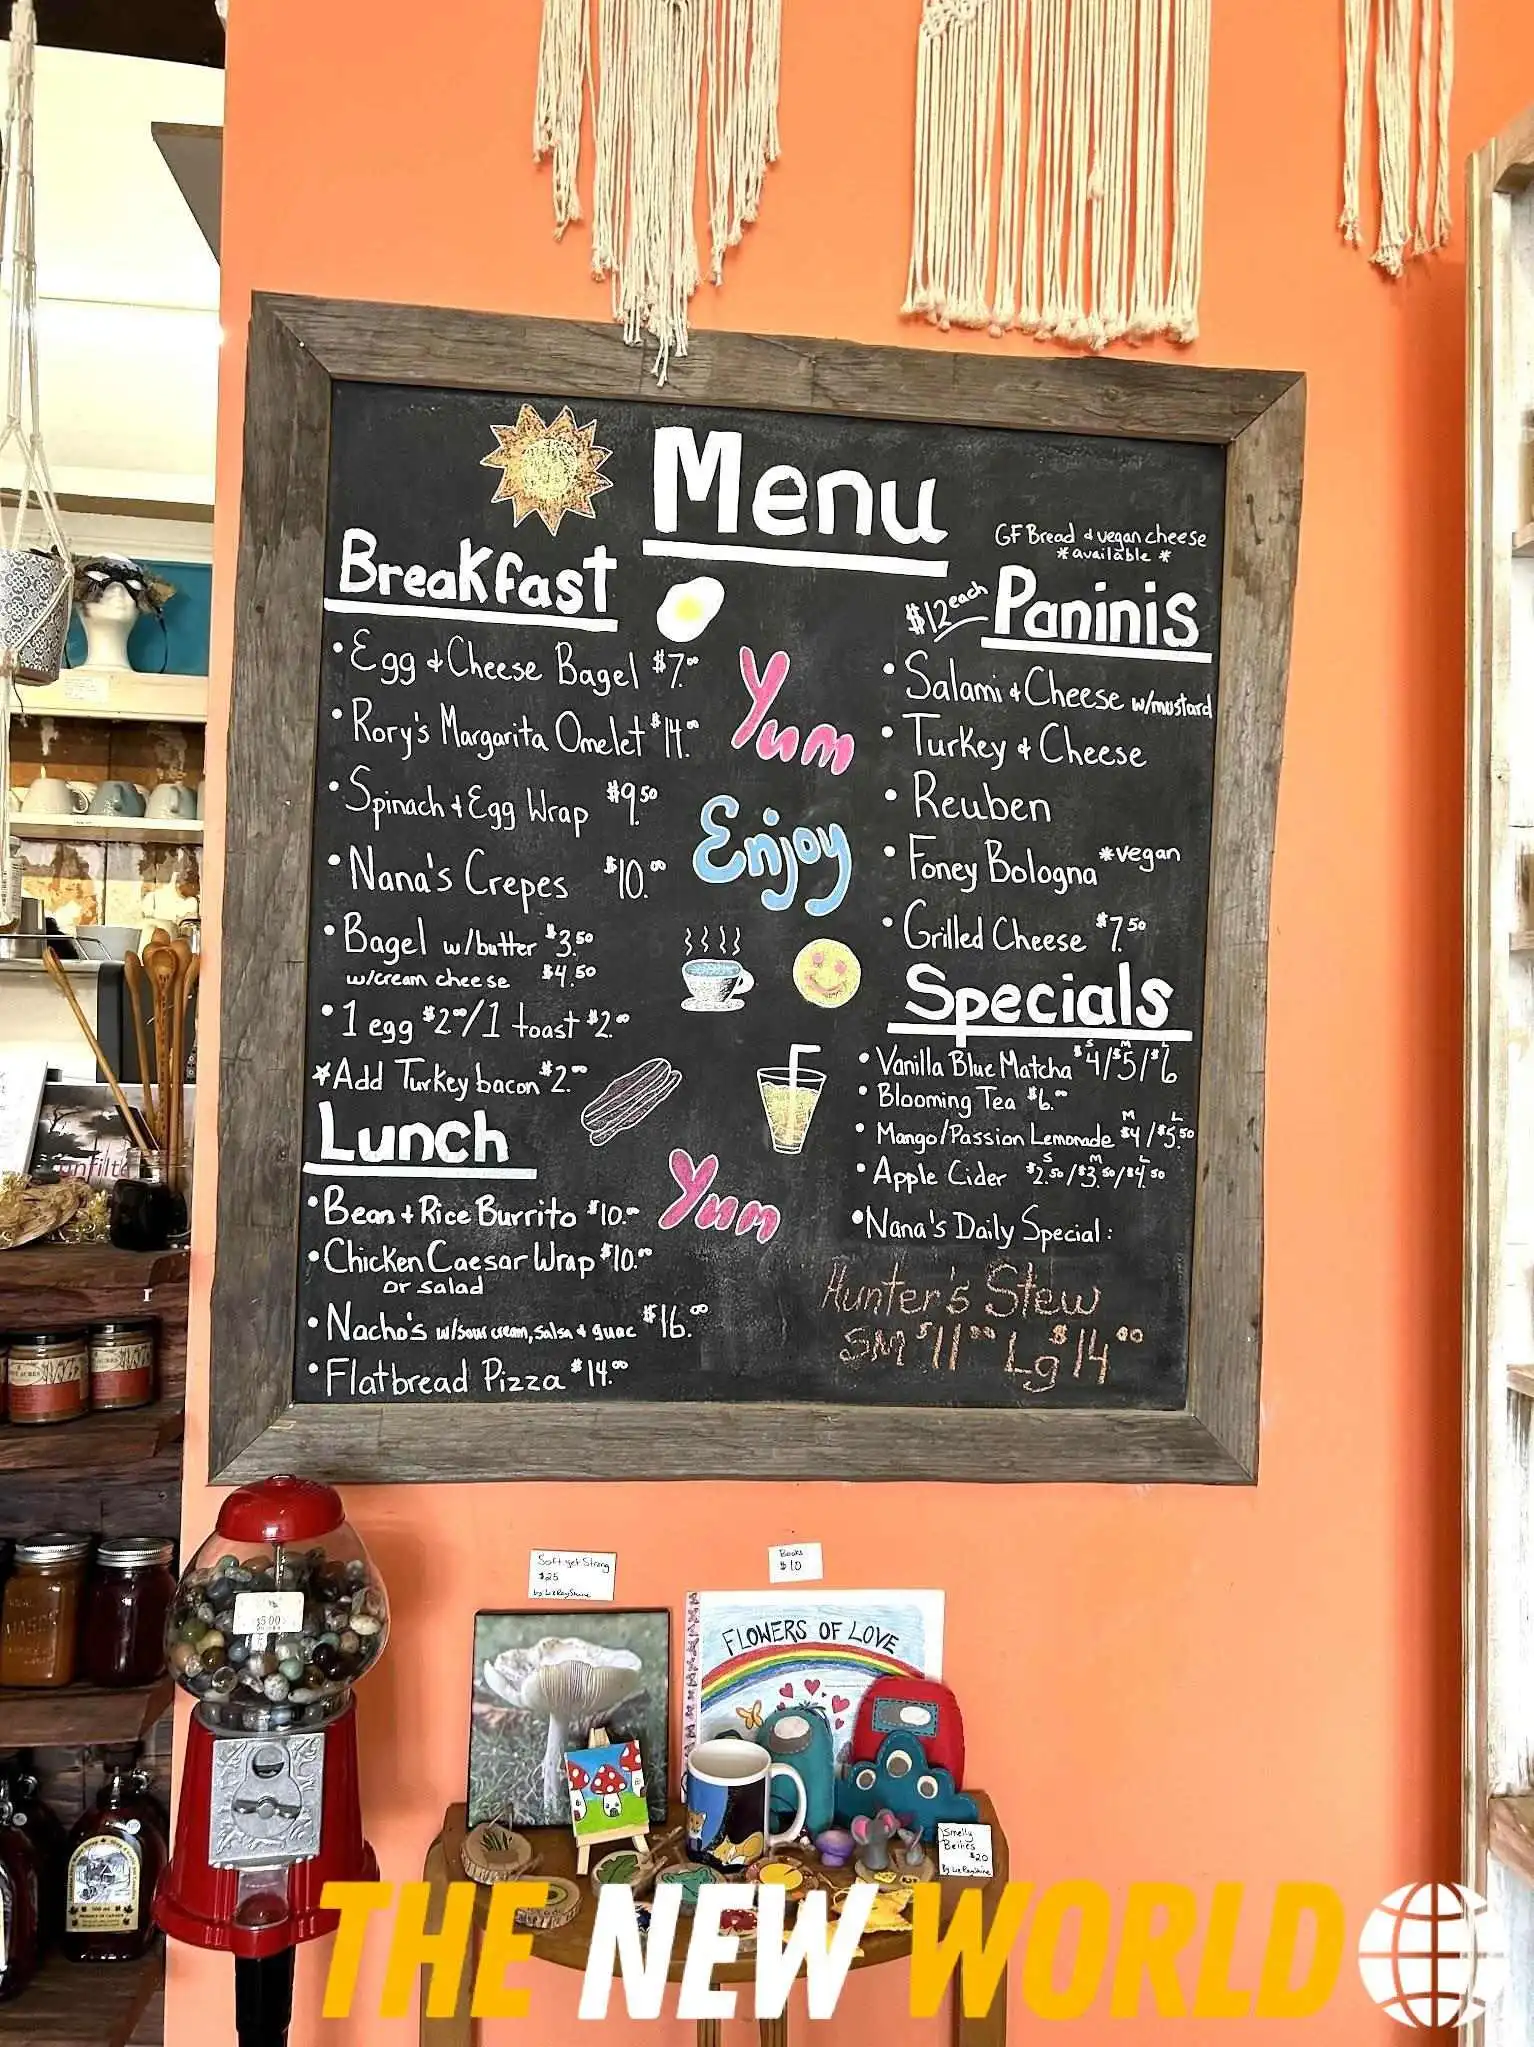 Menu
Breakfast
• Egg & Cheese Bagel $7.00
• Rory's Margarita Omelet $14.00
• Spinach & Egg Wrap $9.50
• Nana's Crepes $10.00
• Bagel w/butter $3.50
w/cream cheese $4.50
• 1 egg $2.00/1 toast $2.00
*Add Turkey bacon $2.00
Lunch
• Bean & Rice Burrito $10.00
• Chicken Caesar Wrap $10.00
or salad
• Nacho's w/sour cream, salsa & guac $16.00
• Flatbread Pizza $14.00
Yum
Enjoy
Yum
GF Bread & vegan cheese
*available*
$12 each Paninis
• Salami & Cheese w/mustard
• Turkey & Cheese
• Reuben
• Foney Bologna *vegan
• Grilled Cheese $7.50
Specials
S M L
• Vanilla Blue Matcha $4/$5/$6
• Blooming Tea $6.00
M L
• Mango/Passion Lemonade $4/$5.50
S M L
• Apple Cider $2.50/$3.50/$4.50
• Nana's Daily Special:
Hunter's Stew
SM $11.00 Lg $14.00
unfilte
$5.00
Soft yet Strong
$25
by LizRayShine
Books
$10
FLOWERS OF LOVE
Smelly
Bellies
$20
By LizRayShine
THE NEW WORLD